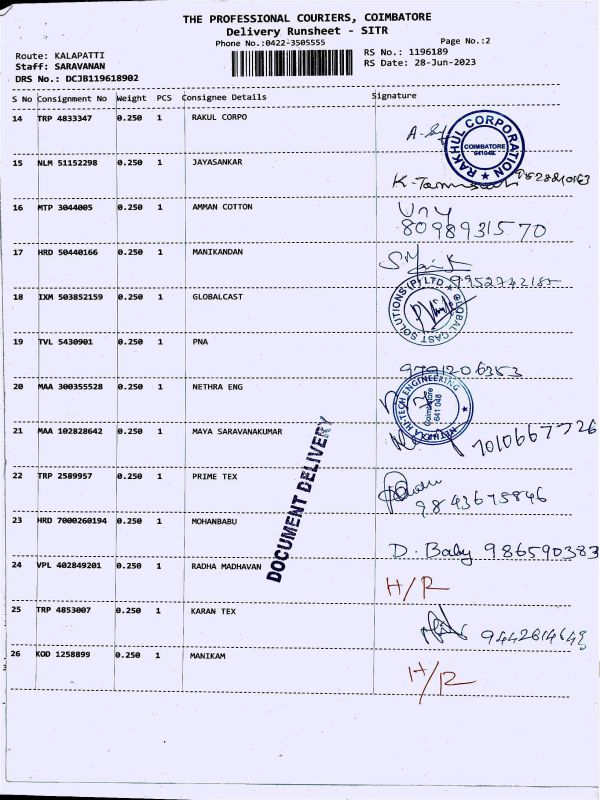 THE PROFESSIONAL COURIERS, COIMBATORE
Delivery Runsheet - SITR
Phone No.:0422-3505555
Page No.:2
Route: KALAPATTI
RS No.: 1196189
Staff: SARAVANAN
RS Date: 28-Jun-2023
DRS No.: DCJB119618902
S No Consignment No Weight PCS Consignee Details Signature
14 TRP 4833347 0.250 1 RAKUL CORPO
RAKHUL CORPORATION
COIMBATORE
15 NLM 51152298 0.250 1 JAYASANKAR
16 MTP 3044005 0.250 1 AMMAN COTTON
8098931570
17 HRD 50440166 0.250 1 MANIKANDAN
9952742185
18 IXM 503852159 0.250 1 GLOBALCAST
GLOBAL CAST SOLUTIONS (P) LTD
19 TVL 5430901 0.250 1 PNA
9791206353
20 MAA 300355528 0.250 1 NETHRA ENG
Coimbatore
641 048
21 MAA 102828642 0.250 1 MAYA SARAVANAKUMAR
7010667726
22 TRP 2589957 0.250 1 PRIME TEX
9843675846
23 HRD 7000260194 0.250 1 MOHANBABU
D. Baby 986590383
24 VPL 402849201 0.250 1 RADHA MADHAVAN
H/R
25 TRP 4853007 0.250 1 KARAN TEX
26 KOD 1258899 0.250 1 MANIKAM
H/R
DOCUMENT DELIVERY